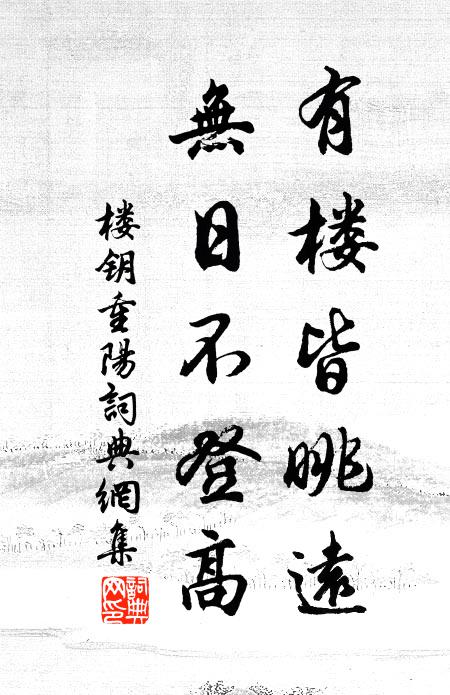 有楼皆眺遠
無日不登高
楼钥重陽詞典網集
詞典网印